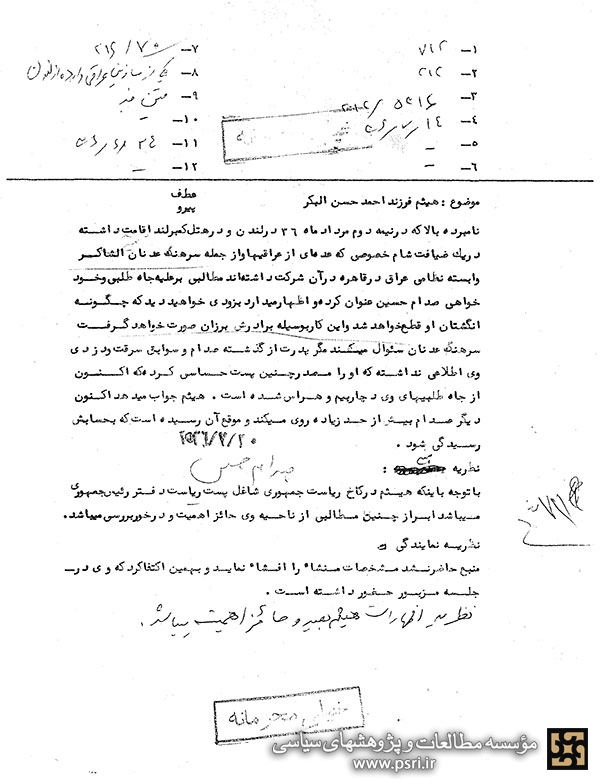 ۱- ۷۱۲
۲- ۲۱۲
۳- 
۴- 
۵- –
۶- –
۷- 
۸- یکی از 
۹- متن خبر
۱۰-
۱۱- 
۱۲- –
موضوع : هیثم فرزند احمد حسن البکر
عطف
پیرو
نامبرده بالا که در نیمه دوم مرداد ماه ۳۶ در لندن و در هتل کمبرلند اقامت داشته
در یک ضیافت شام خصوصی که عده‌ای از عراقیها و از جمله سرهنگ عدنان الشاکر
وابسته نظامی عراق در قاهره در آن شرکت داشته‌اند مطالبی بر علیه جاه طلبی و خود
خواهی صدام حسین عنوان کرده و اظهار میدارد بزودی خواهید دید که چگونه
انگشتان او قطع خواهد شد و این کار بوسیله برادرش برزان صورت خواهد گرفت
سرهنگ عدنان سئوال میکند مگر پدرت از گذشته صدام و سوابق سرقت و دزدی
وی اطلاعی نداشته که او را مصدر چنین پست حساسی کرد که اکنون
از جاه طلبیهای وی دچار بیم و هراس شده است . هیثم جواب میدهد اکنون
دیگر صدام بیش از حد زیاده روی میکند و موقع آن رسیده است که بحسابش
رسیدگی شود . ۲۵۳۶/۷/۲۰
صدام حسین
نظریه :
با توجه باینکه هیثم در کاخ ریاست جمهوری شاغل پست ریاست دفتر رئیس جمهوری
میباشد ابراز چنین مطالبی از ناحیه وی حائز اهمیت و در خور بررسی میباشد.
نظریه نمایندگی
منبع حاضر نشد مشخصات منشاء را افشاء نماید و بهمین اکتفا کرد که وی در
جلسه مزبور حضور داشته است .
نظریه اظهارات هیثم بعید و حائز اهمیت میباشد.
خیلی محرمانه
مؤسسه مطالعات و پژوهشهای سیاسی
www.psri.ir